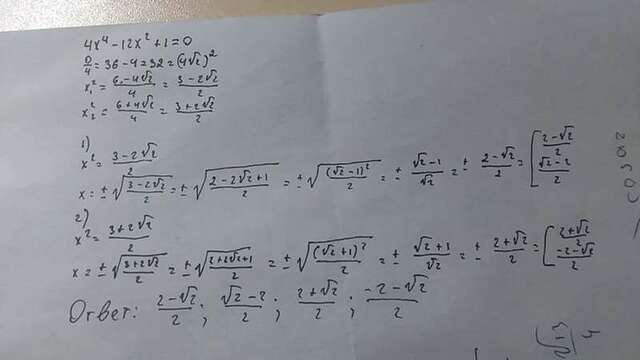 4x⁴ - 12x² + 1 = 0
D/4 = 36 - 4 = 32 = (4√2)²
x₁² = (6 - 4√2)/4 = (3 - 2√2)/2
x₂² = (6 + 4√2)/4 = (3 + 2√2)/2
1)
x² = (3 - 2√2)/2
x = ± √((3 - 2√2)/2) = ± √((2 - 2√2 + 1)/2) = ± √((√2 - 1)²/2) = ± (√2 - 1)/√2 = ± (2 - √2)/2 = [ (2 - √2)/2 ; (√2 - 2)/2
2)
x² = (3 + 2√2)/2
x = ± √((3 + 2√2)/2) = ± √((2 + 2√2 + 1)/2) = ± √((√2 + 1)²/2) = ± (√2 + 1)/√2 = ± (2 + √2)/2 = [ (2 + √2)/2 ; (-2 - √2)/2
Ответ: (2 - √2)/2 ; (√2 - 2)/2 ; (2 + √2)/2 ; (-2 - √2)/2